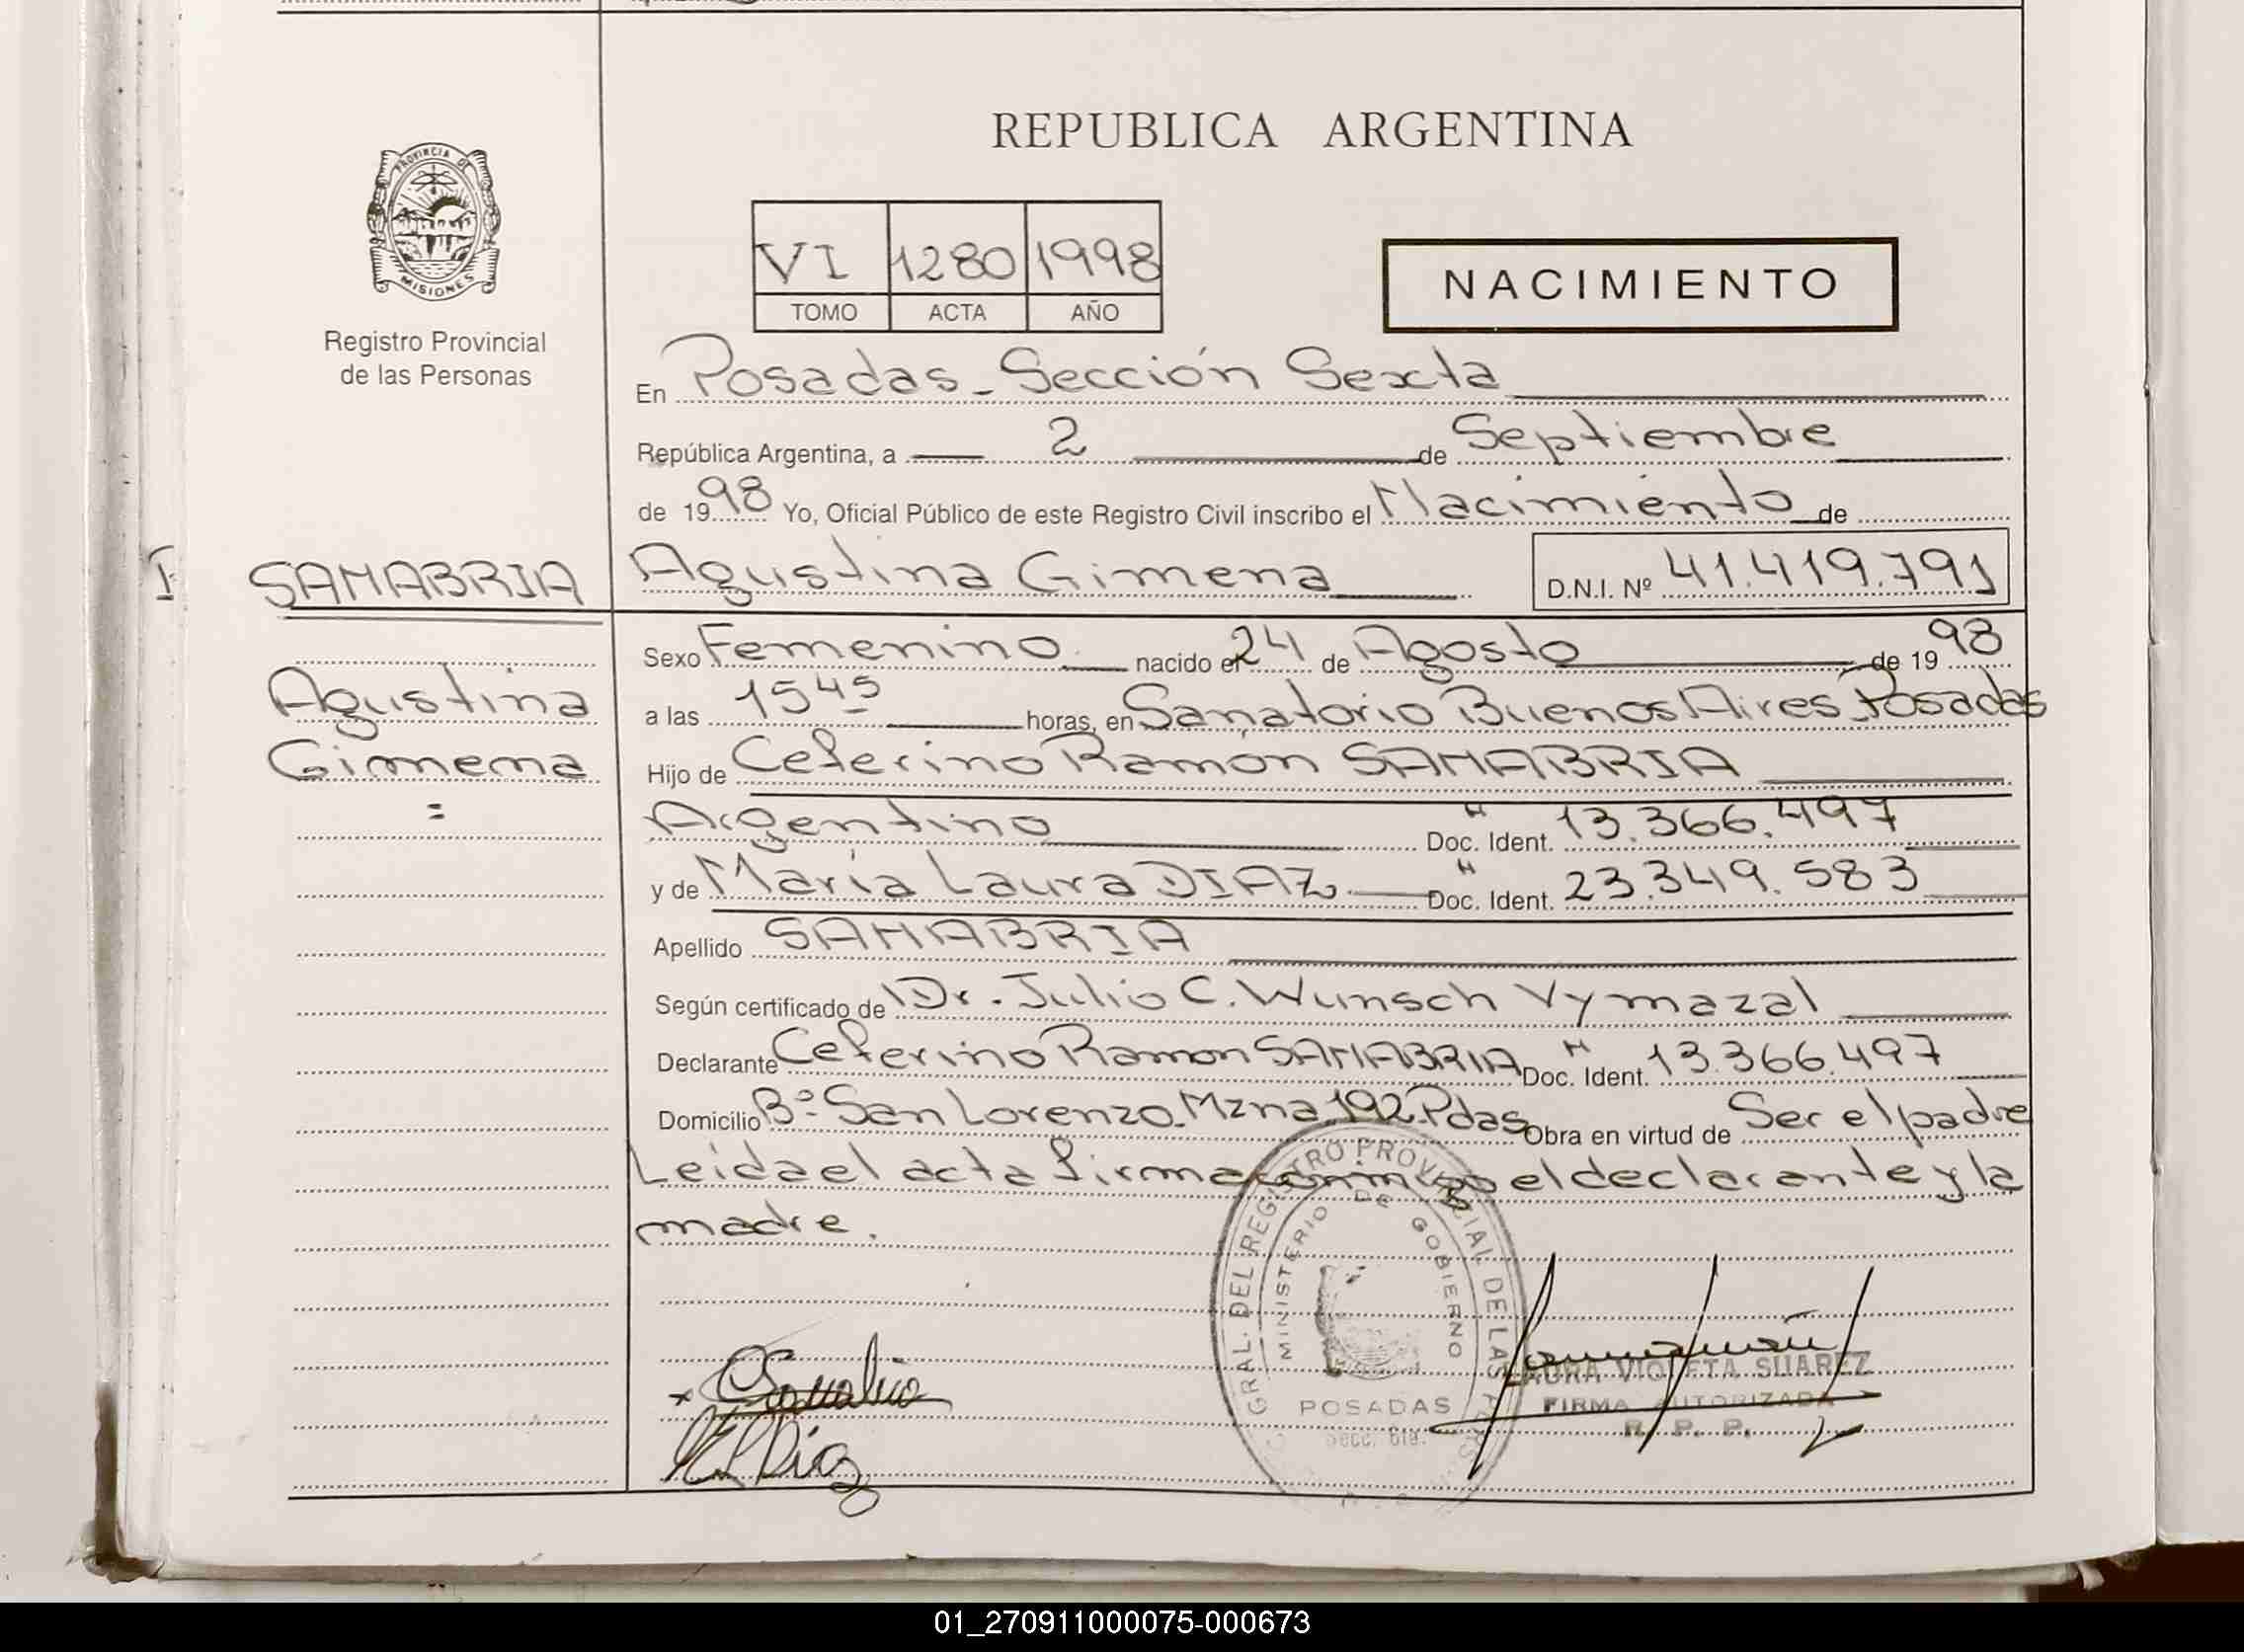 REPUBLICA ARGENTINA
PROVINCIA DE
MISIONES
Registro Provincial
de las Personas
VI 1280 1998
TOMO ACTA AÑO
NACIMIENTO
En Posadas - Sección Sexta
República Argentina, a 2 de Septiembre
de 1998 Yo, Oficial Público de este Registro Civil inscribo el Nacimiento de
SANABRIA Agustina Gimena D.N.I. Nº 41.419.791
Sexo Femenino nacido el 24 de Agosto de 1998
Agustina
a las 15 45 horas, en Sanatorio Buenos Aires Posadas
Gimena
Hijo de Ceferino Ramón SANABRIA
=
Argentino Doc. Ident. 13.366.497
y de María Laura DIAZ Doc. Ident. 23.349.583
Apellido SANABRIA
Según certificado de Dr. Julio C. Wunsch Vymazal
Declarante Ceferino Ramon SANABRIA Doc. Ident. 13.366.497
Domicilio Bº San Lorenzo. Mzna 192 Pdas Obra en virtud de Ser el padre
Leida el acta firma conmigo el declarante y la
madre.
GRAL. DEL REGISTRO PROVINCIAL DE LAS
MINISTERIO DE GOBIERNO
POSADAS
Secc. 6ta.
LAURA VIOLETA SUAREZ
FIRMA AUTORIZADA
R. P. P.
Diaz
01_270911000075-000673